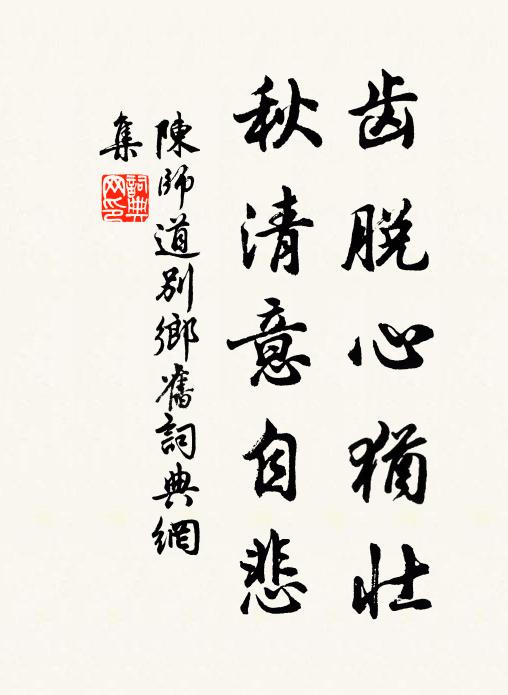 齿脱心犹壮
秋清意自悲
陳師道別鄉舊詞典網
集
詞典
网印